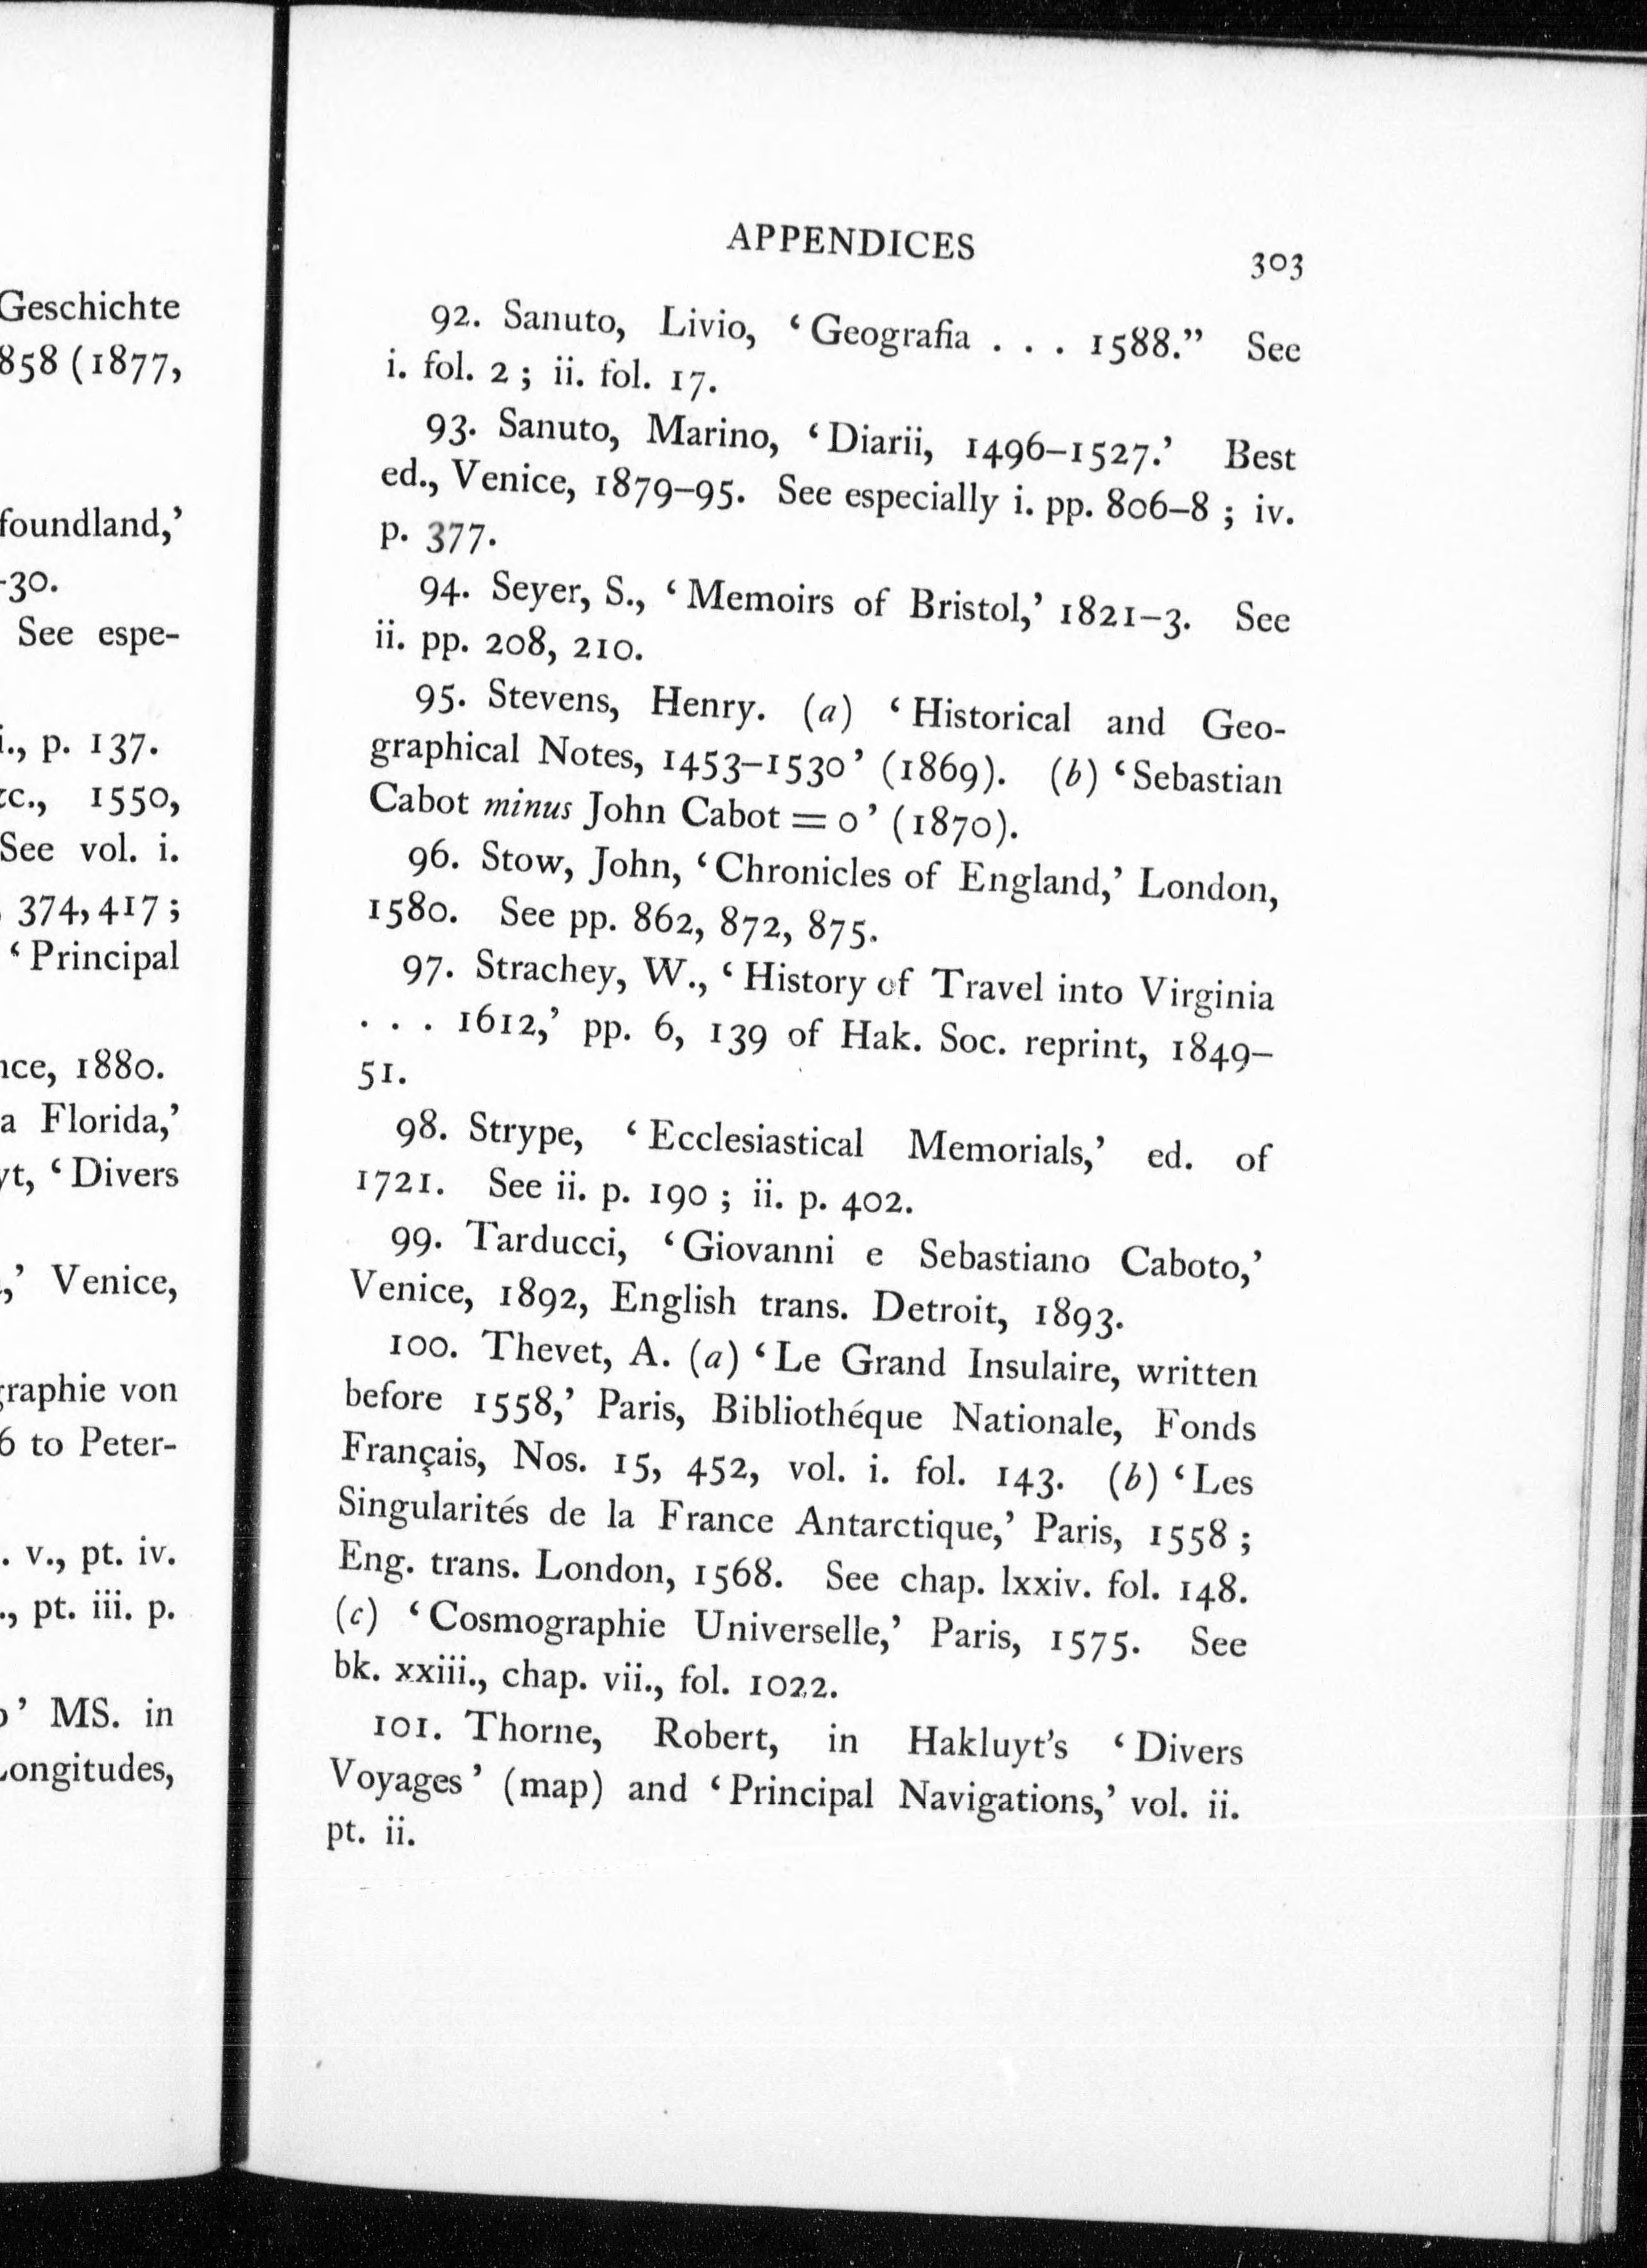 Geschichte
858 (1877,
foundland,’
-30.
See espe-
i., p. 137.
1550,
See vol. i.
374, 417 ;
‘ Principal
1880.
a Florida,’
‘ Divers
,’ Venice,
graphie von
6 to Peter-
. v., pt. iv.
., pt. iii. p.
’ MS. in
Longitudes,
APPENDICES
303
92. Sanuto, Livio, ‘ Geografia . . . 1588.” See
i. fol. 2 ; ii. fol. 17.
93. Sanuto, Marino, ‘ Diarii, 1496–1527.’ Best
ed., Venice, 1879–95. See especially i. pp. 806–8 ; iv.
p. 377.
94. Seyer, S., ‘ Memoirs of Bristol,’ 1821–3. See
ii. pp. 208, 210.
95. Stevens, Henry. (a) ‘ Historical and Geo-
graphical Notes, 1453–1530 ’ (1869). (b) ‘ Sebastian
Cabot minus John Cabot = 0 ’ (1870).
96. Stow, John, ‘ Chronicles of England,’ London,
1580. See pp. 862, 872, 875.
97. Strachey, W., ‘ History of Travel into Virginia
. . . 1612,’ pp. 6, 139 of Hak. Soc. reprint, 1849–
51.
98. Strype, ‘ Ecclesiastical Memorials,’ ed. of
1721. See ii. p. 190 ; ii. p. 402.
99. Tarducci, ‘ Giovanni e Sebastiano Caboto,’
Venice, 1892, English trans. Detroit, 1893.
100. Thevet, A. (a) ‘ Le Grand Insulaire, written
before 1558,’ Paris, Bibliothéque Nationale, Fonds
Français, Nos. 15, 452, vol. i. fol. 143. (b) ‘ Les
Singularités de la France Antarctique,’ Paris, 1558 ;
Eng. trans. London, 1568. See chap. lxxiv. fol. 148.
(c) ‘ Cosmographie Universelle,’ Paris, 1575. See
bk. xxiii., chap. vii., fol. 1022.
101. Thorne, Robert, in Hakluyt’s ‘ Divers
Voyages ’ (map) and ‘ Principal Navigations,’ vol. ii.
pt. ii.